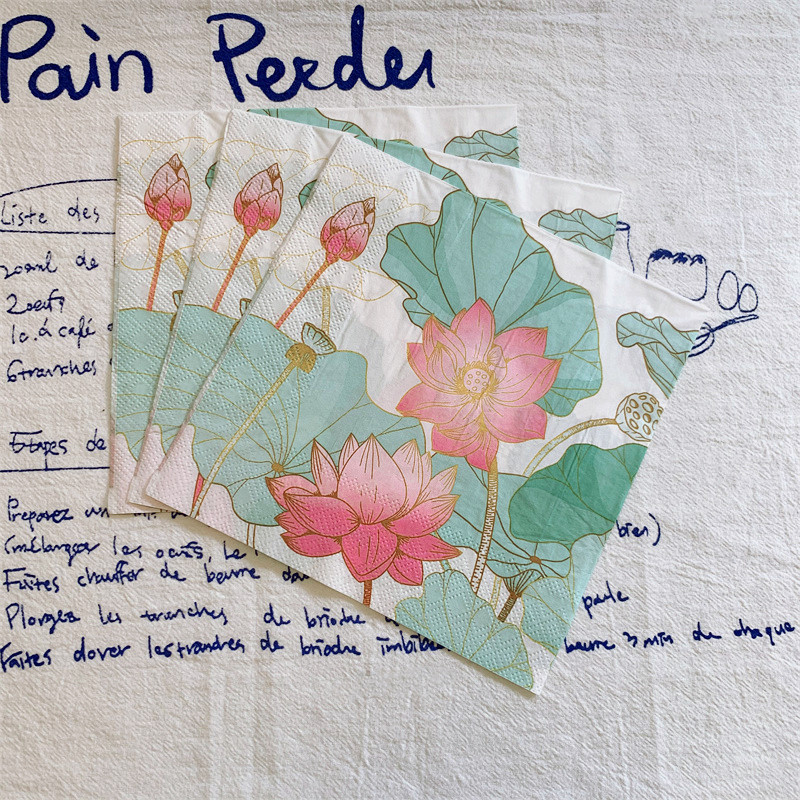 Pain Perdu
Liste des
20ml de
2 oeufs
1c. à café
6 tranches
Etapes de
Preparez un
(mélanger les oeufs, le bien)
Faites chauffer de beurre
Plongez les tranches de brioche poele
Faites dorer les tranches de brioche imbibé beurre 3 min de chaque